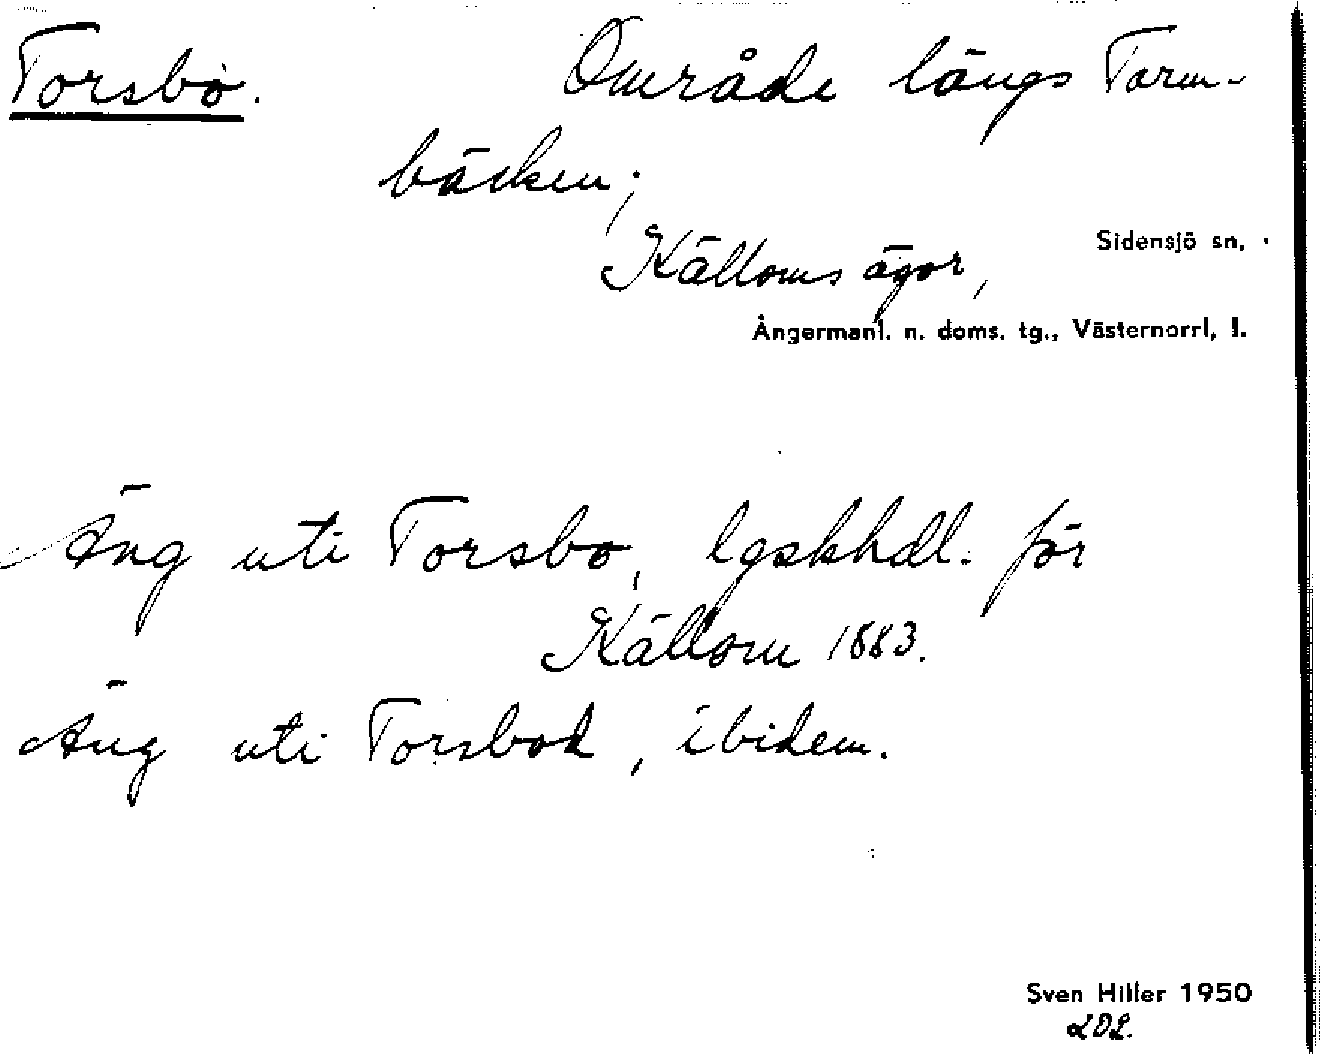 Torsbo. Område längs Tarm-
bäcken;
Sidensjö sn,
Källoms ägor,
Ångermanl. n. doms. tg., Västernorrl. l.
Äng uti Torsbo, lgskhdl. för
Källom 1883.
Äng uti Torsbod, ibidem.
Sven Hiller 1950
LDL.